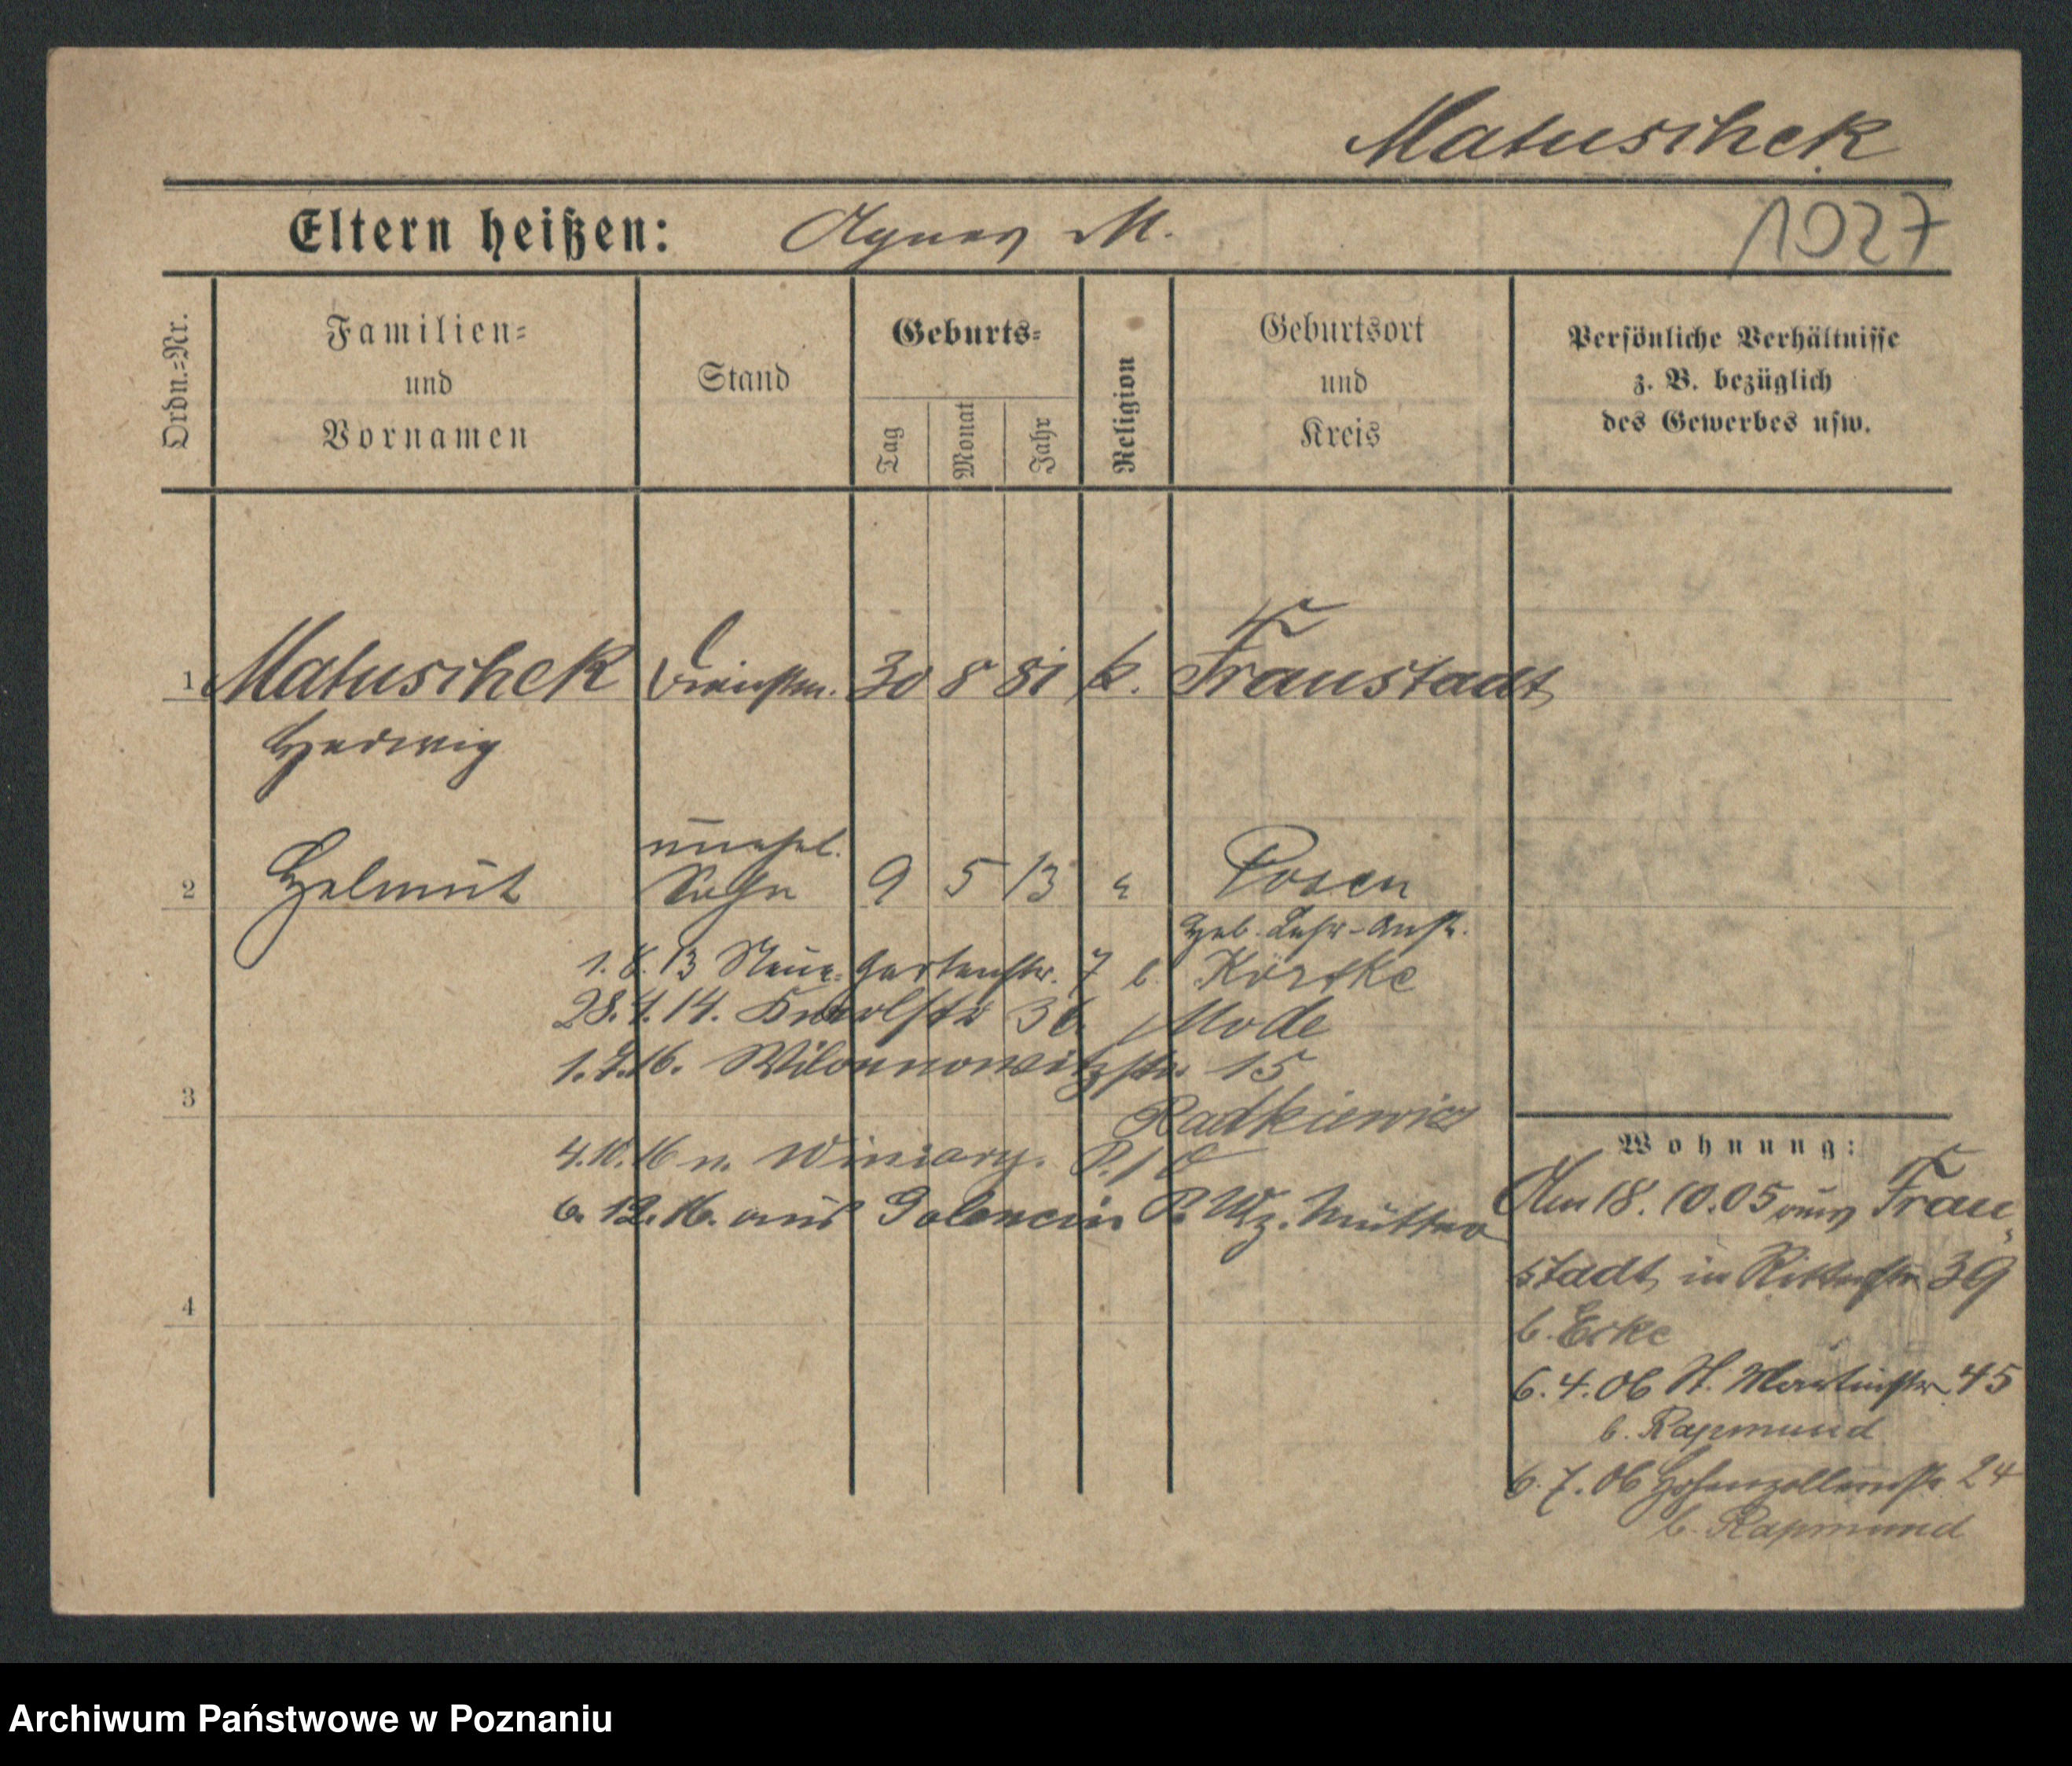 Matuschek
Eltern heißen: Agnes M.
1027
Ordn.=Nr.
Familien=
und
Vornamen
Stand
Geburts=
Tag
Monat
Jahr
Religion
Geburtsort
und
Kreis
Persönliche Verhältnisse
z. B. bezüglich
des Gewerbes usw.
1 Matuschek 30 8 81 k. Fraustadt
Hedwig
unehel.
2 Helmut Sohn 9 5 13 " Posen
Heb. Lehr-Anst.
1.8.13 Neue Gartenstr. 7 b. Körtke
28.4.14. 36 Mode
1.7.16. Wilamowitzstr. 15
3 Radkiewicz
4.10.16 n. Winiary. P.
6.12.16. aus Golencin P. Wz. Mutter
4
Wohnung:
Am 18.10.05 aus Frau-
stadt in Ritterstr 39
b. Erke
6.4.06 St. Martinstr. 45
b. Rapmund
6.7.06 Hohenzollernstr 24
b. Rapmund
Archiwum Państwowe w Poznaniu